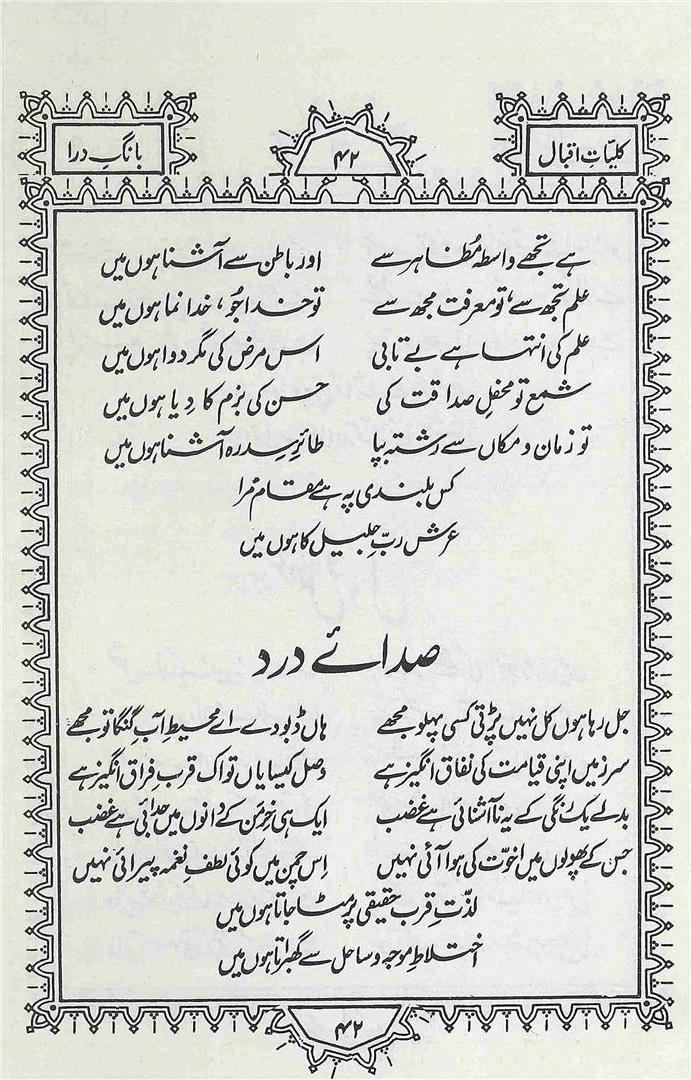 کلیاتِ اقبال
۴۲
بانگِ درا
ہے تجھے واسطہ مظاہر سے اور باطن سے آشنا ہوں میں
علم تجھ سے، تو معرفت مجھ سے تو خدا جُو، خدا نما ہوں میں
علم کی انتہا ہے بے تابی اس مرض کی مگر دوا ہوں میں
شمع تو محفلِ صداقت کی حسن کی بزم کا دِیا ہوں میں
تو زمان و مکاں سے رشتہ بپا طائرِ سِدرہ آشنا ہوں میں
کس بلندی پہ ہے مقام مرا
عرش ربِّ جلیل کا ہوں میں
صدائے درد
جل رہا ہوں کل نہیں پڑتی کسی پہلو مجھے ہاں ڈبو دے اے محیطِ آبِ گنگا تو مجھے
سرزمیں اپنی قیامت کی نفاق انگیز ہے وصل کیسا یاں تو اک قربِ فراق انگیز ہے
بدلے یک رنگی کے یہ ناآشنائی ہے غضب ایک ہی خرمن کے دانوں میں جدائی ہے غضب
جس کے پھولوں میں اخوّت کی ہوا آئی نہیں اِس چمن میں کوئی لطفِ نغمہ پیرائی نہیں
لذّتِ قربِ حقیقی پر مٹا جاتا ہوں میں
اختلاطِ موجہ و ساحل سے گھبراتا ہوں میں
۴۲